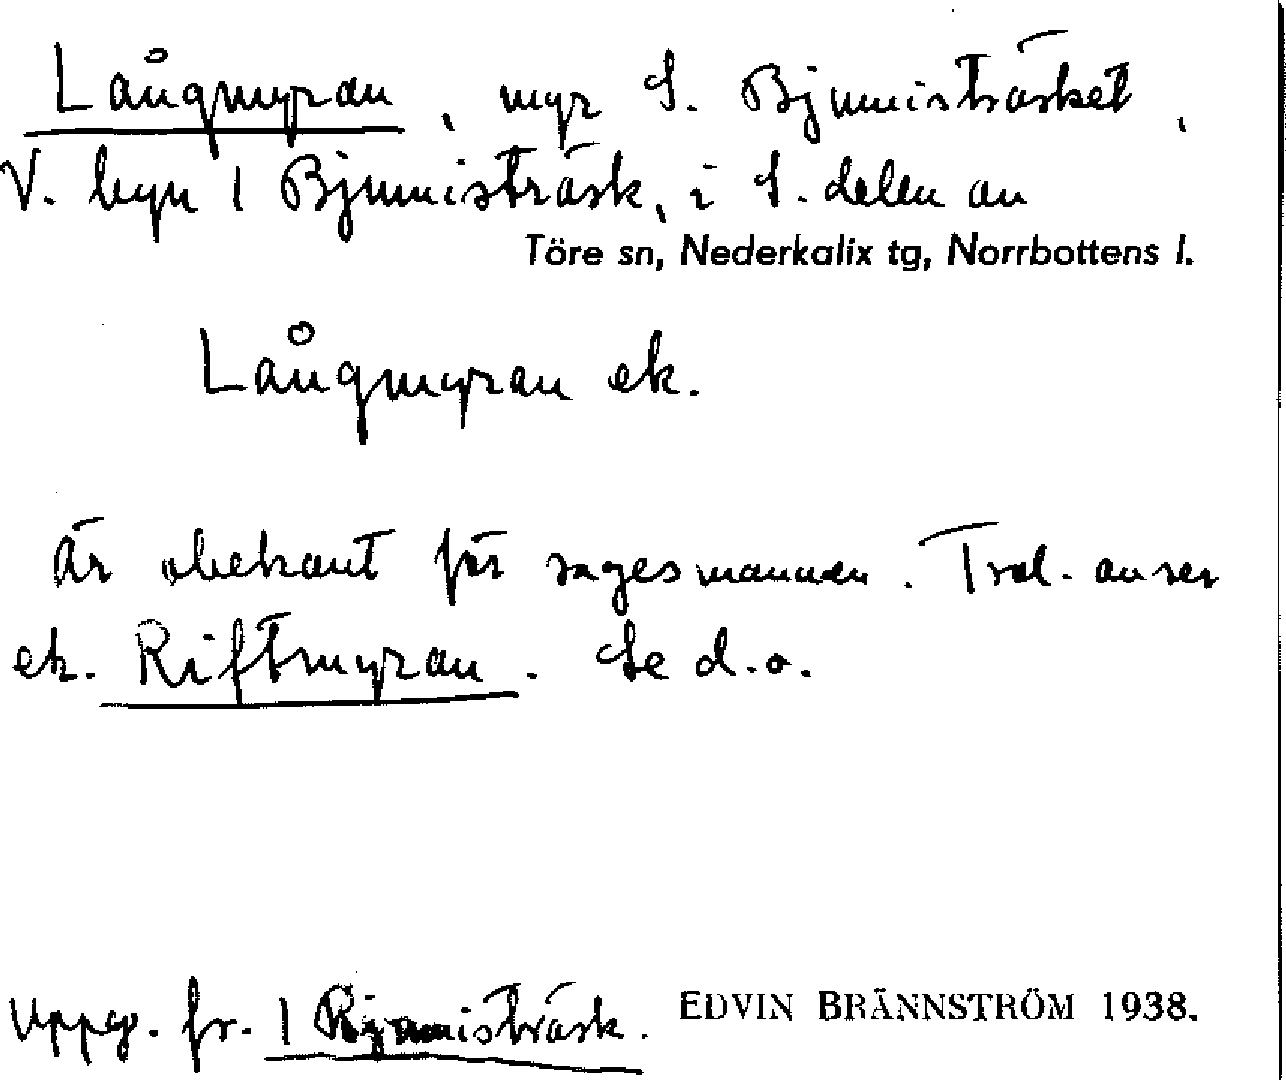 Långmyran, myr S. Bjumisträsket,
V. byn 1 Bjumisträsk, i S. delen av
Töre sn, Nederkalix tg, Norrbottens l.
Långmyran ek.
Är obekant för sagesmannen. Trol. avser
ek. Riftmyran. Se d.o.
Uppg. fr. 1 Bjumisträsk. EDVIN BRÄNNSTRÖM 1938.